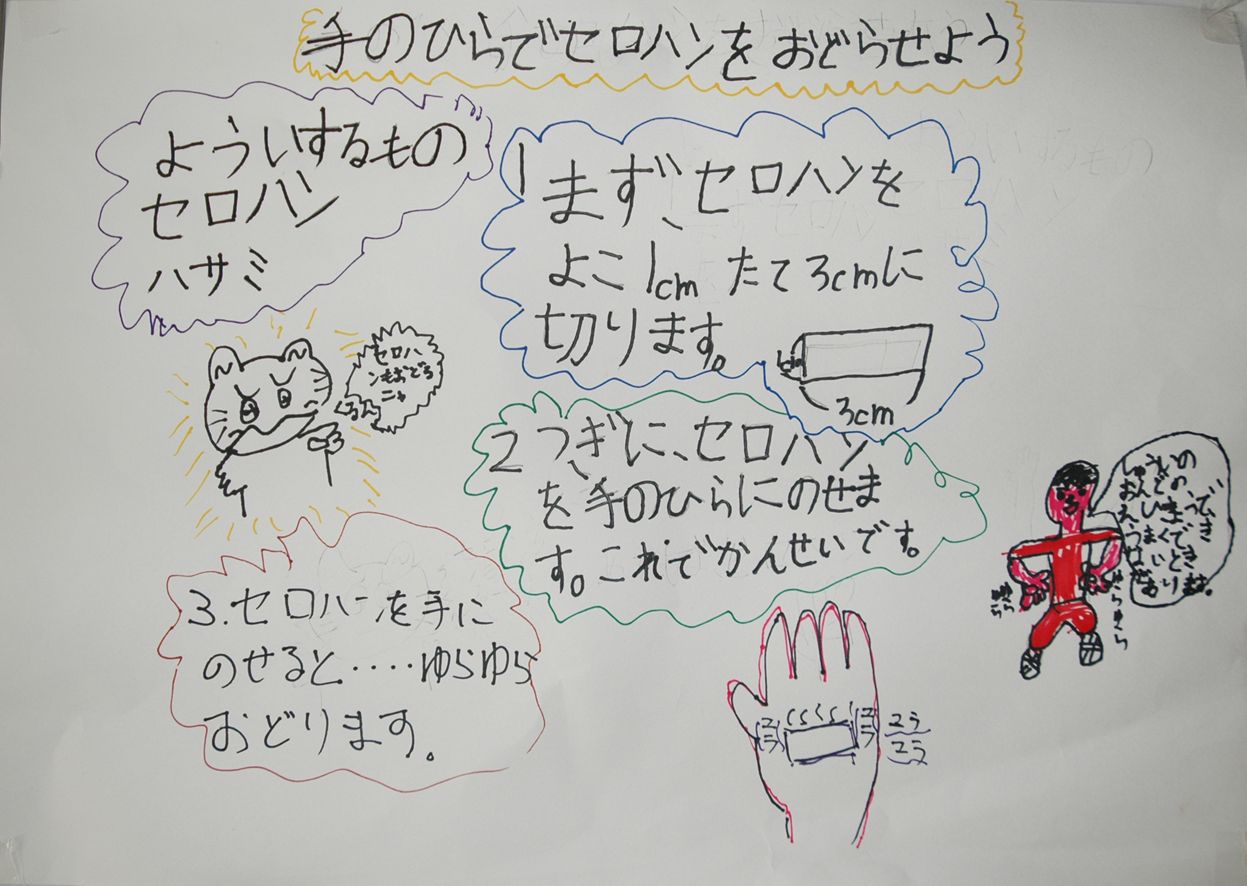 手のひらでセロハンをおどらせよう
よういするもの
セロハン
ハサミ
1まず、セロハンを
よこ1cmたて3cmに
切ります。
1cm
3cm
セロハ
ンもおどる
ニャ
2つぎに、セロハン
を手のひらにのせま
す。これでかんせいです。
3.セロハンを手に
のせると・・・・ゆらゆら
おどります。
ユラ
ユラ
ユラ
ユラ
ゆらゆら